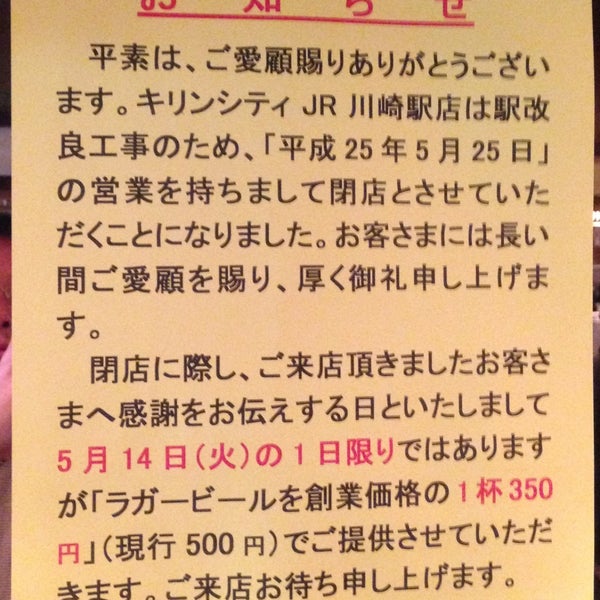 お知らせ
平素は、ご愛顧賜りありがとうござい
ます。キリンシティJR川崎駅店は駅改
良工事のため、「平成25年5月25日」
の営業を持ちまして閉店とさせていた
だくことになりました。お客さまには長い
間ご愛顧を賜り、厚く御礼申し上げま
す。
閉店に際し、ご来店頂きましたお客さ
まへ感謝をお伝えする日といたしまして
5月14日(火)の1日限りではあります
が「ラガービールを創業価格の1杯350
円」(現行500円)でご提供させていただ
きます。ご来店お待ち申し上げます。